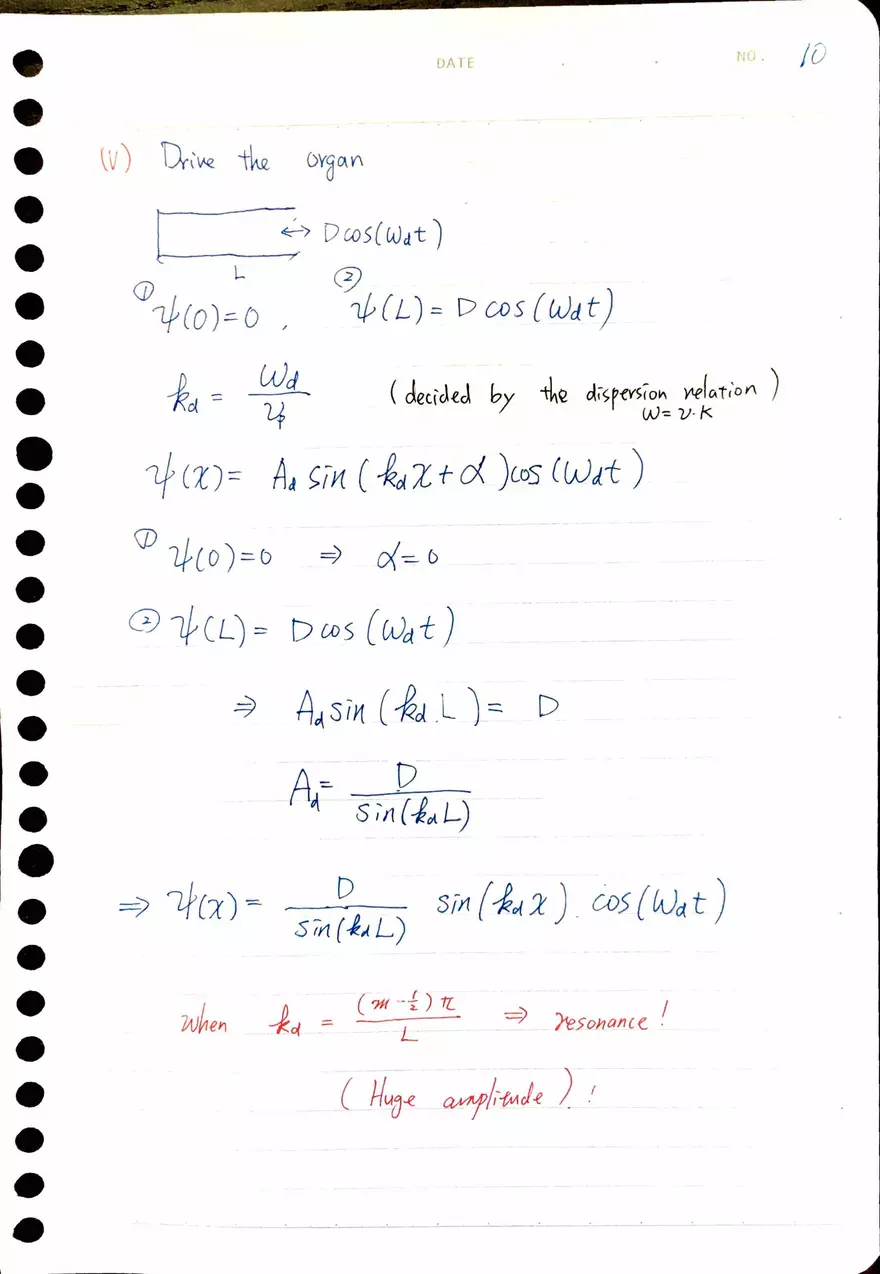 DATE . . NO. 10
(V) Drive the organ
↔ D cos(ωdt)
L
① ψ(0)=0 , ② ψ(L) = D cos(ωdt)
kd = ωd/vp (decided by the dispersion relation)
ω = v·k
ψ(x) = Ad sin(kdx+α)cos(ωdt)
① ψ(0)=0 ⇒ α=0
② ψ(L) = D cos(ωdt)
⇒ Ad sin(kd.L) = D
Ad = D/sin(kdL)
⇒ ψ(x) = D/sin(kdL) sin(kdx). cos(ωdt)
When kd = (m-1/2)π/L ⇒ resonance!
(Huge amplitude)!